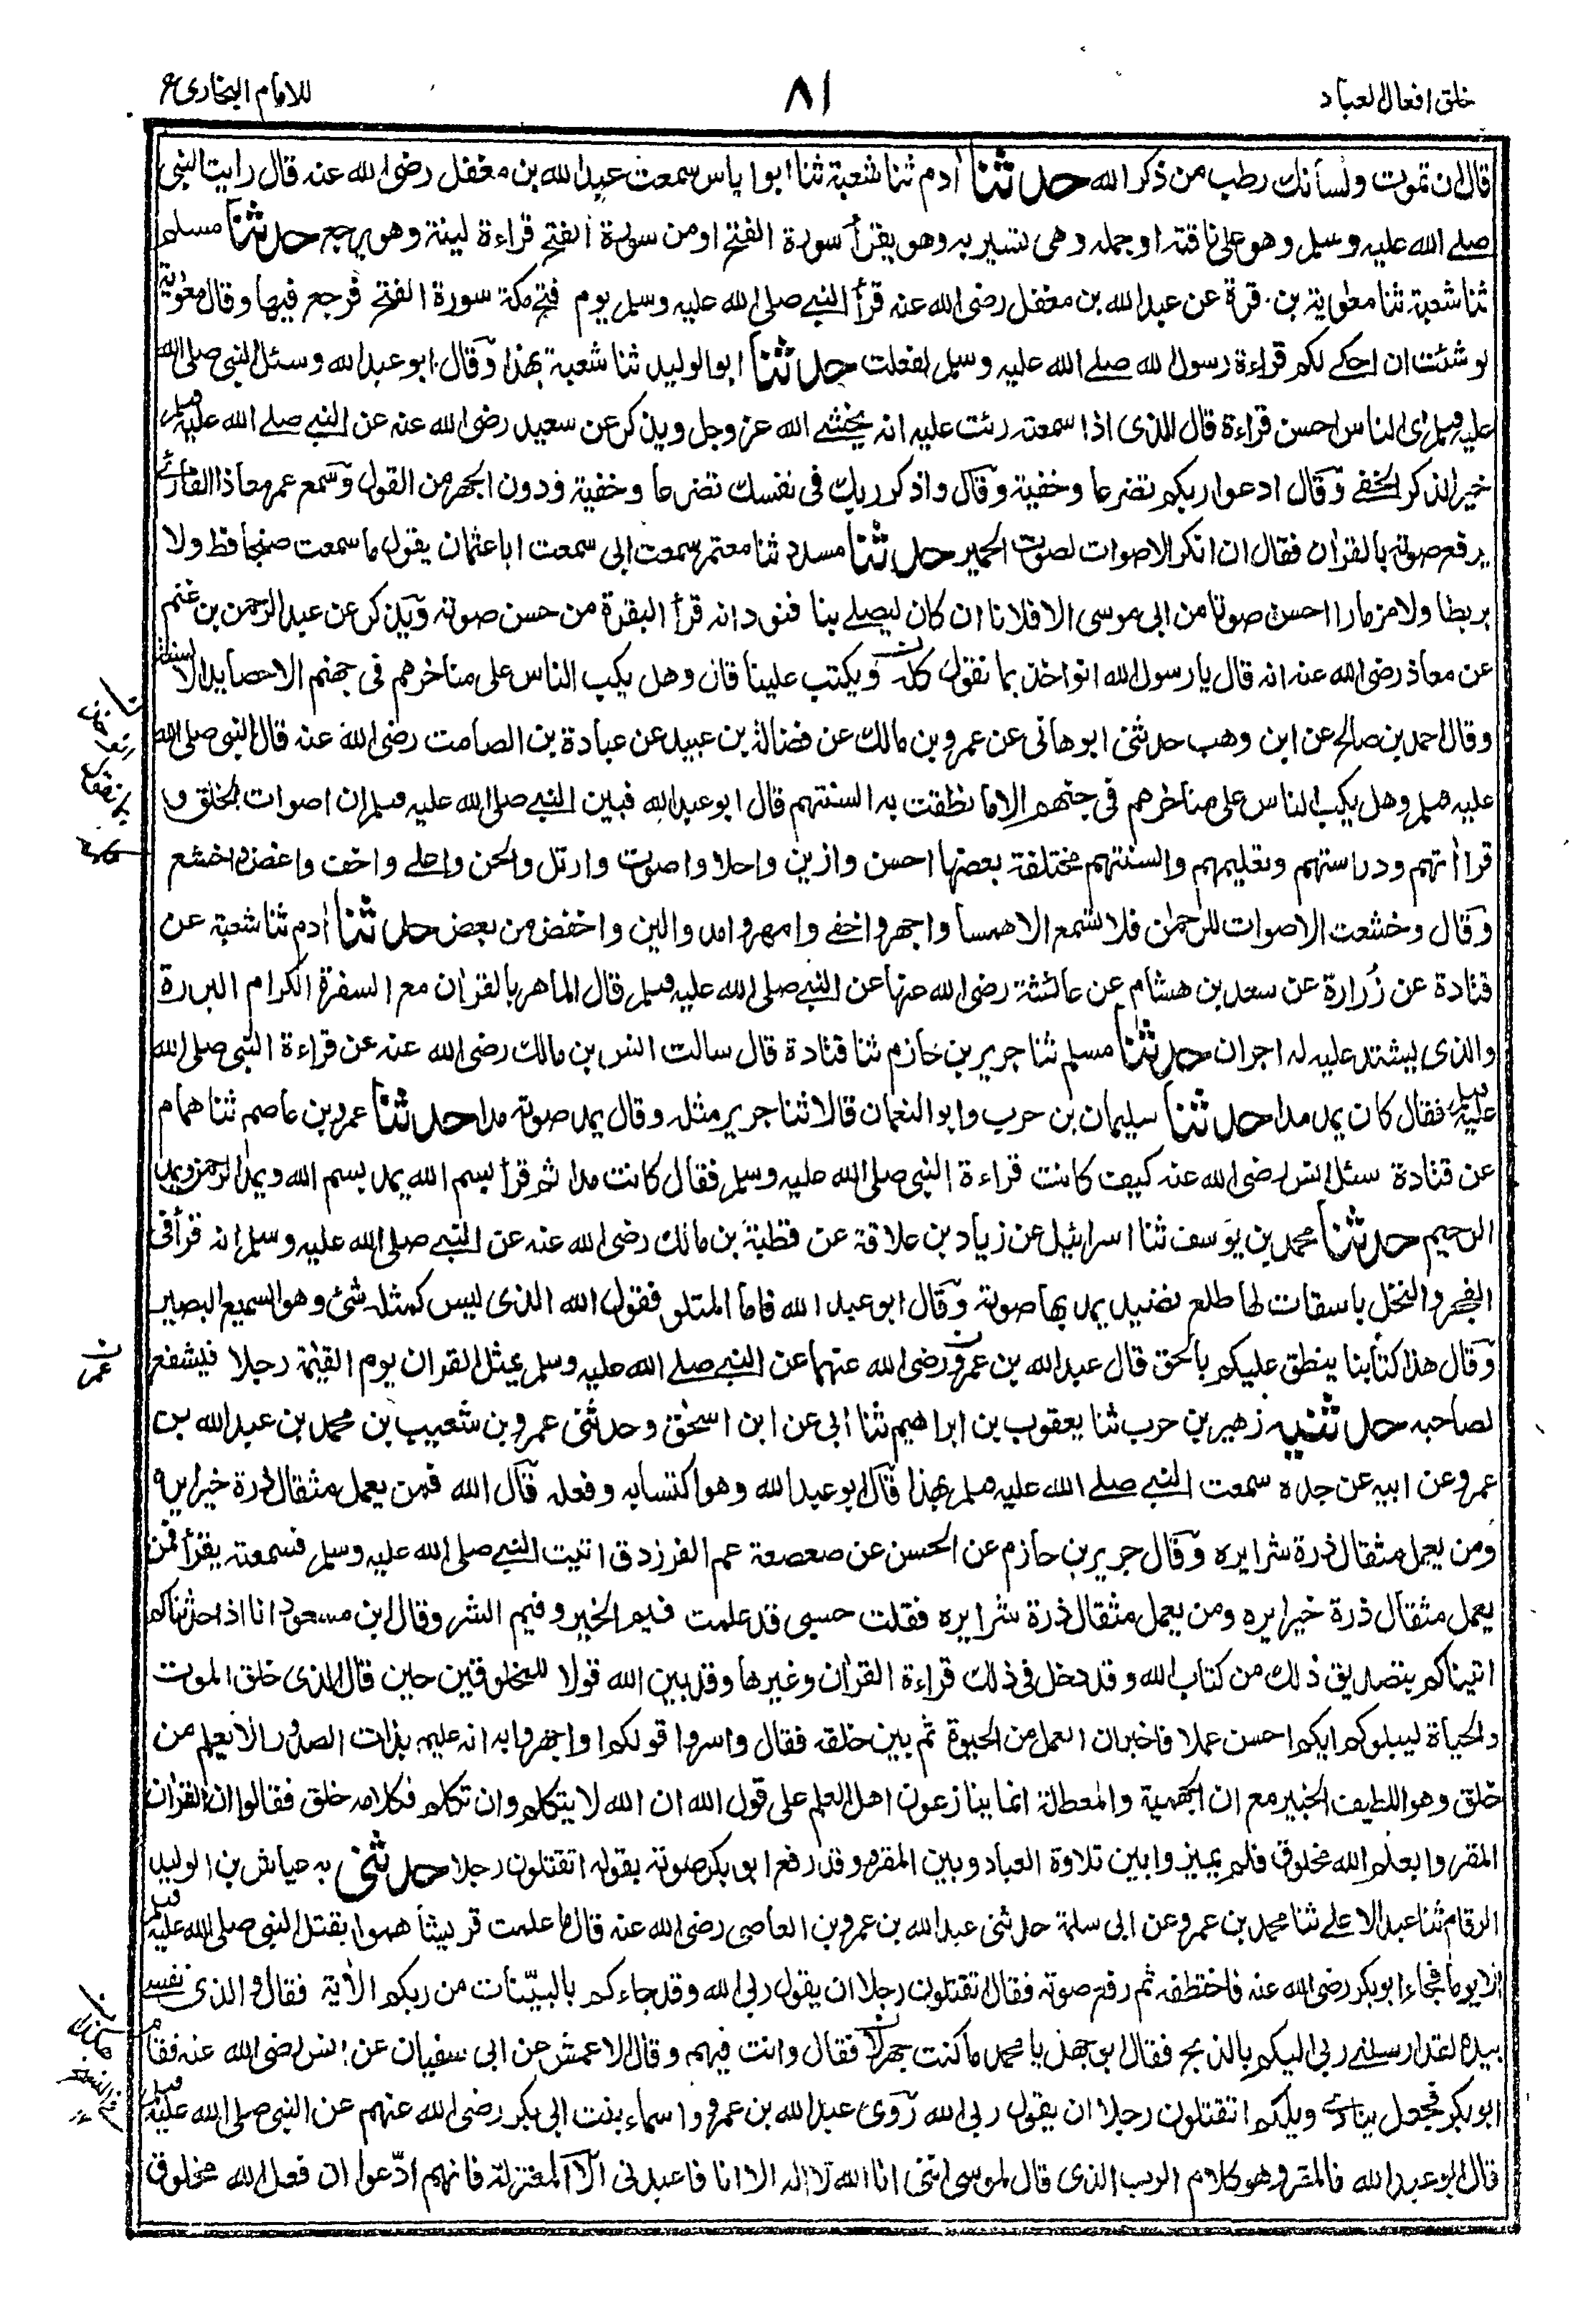 خلق افعال العباد
٨١
للامام البخاری
قال ان تموت ولسانك رطب من ذكر الله حدثنا اٰدم ثنا شعبة ثنا ابو اياس سمعت عبد الله بن مغفل رضى الله عنه قال رايت النبى
صلے الله عليه وسلم وهو على ناقته او جمله وهى تسير به وهو يقرأ سورة الفتح او من سورة الفتح قراءة لينة وهو يرجع حدثنا مسلم
ثنا شعبة ثنا معٰوية بن قرة عن عبد الله بن مغفل رضى الله عنه قرأ النبے صلى الله عليه وسلم يوم فتح مكة سورة الفتح فرجع فيها وقال معٰوية
لو شئت ان احكے لكم قراءة رسول الله صلے الله عليه وسلم لفعلت حدثنا ابو الوليد ثنا شعبة بهذا وقال ابو عبد الله وسئل النبى صلى الله
عليه وسلم اى الناس احسن قراءة قال الذى اذا سمعته رئت عليه انه يخشے الله عز وجل ويذكر عن سعيد رضى الله عنه عن النبے صلے الله عليه وسلم
خير الذكر الخفے وقال ادعوا ربكم تضرعا وخفية وقال واذكر ربك فى نفسك تضرعا وخفية ودون الجهر من القول وسمع عمر معاذا القارئ
يرفع صوته بالقراٰن فقال ان انكر الاصوات لصوت الحمير حدثنا مسدد ثنا معتمر سمعت ابى سمعت ابا عثمان يقول ما سمعت صنجا قط ولا
بربطا ولا مزمارا احسن صوتا من ابى موسى الا فلانا ان كان ليصلے بنا فنود انه قرأ البقرة من حسن صوته ويذكر عن عبد الرحمن بن غنم
عن معاذ رضى الله عنه انه قال يا رسول الله انواخذ بما نقول كله ويكتب علينا قان وهل يكب الناس على مناخرهم فى جهنم الا حصايد الالسنة
وقال احمد بن صالح عن ابن وهب حدثنى ابو هانى عن عمرو بن مالك عن فضالة بن عبيد عن عبادة بن الصامت رضى الله عنه قال النبى صلى الله
عليه وسلم وهل يكب الناس على مناخرهم فى جهنم الا ما نطقت به السنتهم قال ابو عبد الله فبين النبے صلى الله عليه وسلم ان اصوات الخلق و
قراأتهم ودراستهم وتعليمهم والسنتهم مختلفة بعضها احسن وازين واحلا واصوت وارتل والحن واعلے واخف واغض واخشع
وقال وخشعت الاصوات للرحمٰن فلا تسمع الا همسا واجهر واخفے وامهر وامد والين واخفض من بعض حدثنا اٰدم ثنا شعبة عن
قتادة عن زُرارة عن سعد بن هشام عن عائشة رضى الله عنها عن النبے صلى الله عليه وسلم قال الماهر بالقراٰن مع السفرة الكرام البررة
والذى يشتد عليه له اجران حدثنا مسلم ثنا جرير بن حازم ثنا قتادة قال سالت انس بن مالك رضى الله عنه عن قراءة النبى صلى الله
عليه وسلم فقال كان يمد مدا حدثنا سليمان بن حرب وابو النعمان قالا ثنا جرير مثله وقال يمد صوته مدا حدثنا عمرو بن عاصم ثنا همام
عن قتادة سئل انس رضى الله عنه كيف كانت قراءة النبى صلى الله عليه وسلم فقال كانت مدا ثم قرأ بسم الله يمد بسم الله ويمد الرحمن ويمد
الرحيم حدثنا محمد بن يوسف ثنا اسرائيل عن زياد بن علاقة عن قطبة بن مالك رضى الله عنه عن النبے صلى الله عليه وسلم انه قرأ فى
الفجر والنخل باسقات لها طلع نضيد يمد بها صوته وقال ابو عبد الله فاما المتلو فقول الله الذى ليس كمثله شئ وهو السميع البصير
وقال هذا كتابنا ينطق عليكم بالحق قال عبد الله بن عمرو رضى الله عنهما عن النبے صلے الله عليه وسلم يمثل القران يوم القيٰمة رجلا فيشفع
عمر ن
لصاحبه حدثنيه زهير بن حرب ثنا يعقوب بن ابراهيم ثنا ابى عن ابن اسحٰق وحدثنى عمرو بن شعيب بن محمد بن عبد الله بن
عمرو عن ابيه عن جده سمعت النبے صلے الله عليه وسلم بهذا قال ابو عبد الله وهو اكتسابه وفعله قال الله فمن يعمل مثقال ذرة خيرا يره
ومن يعمل مثقال ذرة شرا يره وقال جرير بن حازم عن الحسن عن صعصعة عم الفرزدق اتيت النبے صلى الله عليه وسلم فسمعته يقرأ فمن
يعمل مثقال ذرة خيرا يره ومن يعمل مثقال ذرة شرا يره فقلت حسبى قد علمت فيم الخير وفيم الشر وقال ابن مسعود انا اذا حدثناكم
اتيناكم بتصديق ذلك من كتاب الله وقد دخل فى ذلك قراءة القراٰن وغيرها وقد بين الله قولا للمخلوقين حين قال الذى خلق الموت
والحياة ليبلوكم ايكم احسن عملا فاخبر ان العمل من الحيوة ثم بين خلقه فقال واسروا قولكم او اجهروا به انه عليم بذات الصدور الا يعلم من
خلق وهو اللطيف الخبير مع ان الجهمية والمعطلة انما ينازعون اهل العلم على قول الله ان الله لا يتكلم وان تكلم فكلامه خلق فقالوا ان القراٰن
المقروا بعلم الله مخلوق فلم يميزوا بين تلاوة العباد وبين المقرو وقد رفع ابو بكر صوته بقوله اتقتلون رجلا حدثنى به عياش بن الوليد
الرقام ثنا عبد الاعلے ثنا محمد بن عمرو عن ابى سلمة حدثنى عبد الله بن عمرو بن العاصى رضى الله عنه قال ما علمت قريشا هموا بقتل النبى صلى الله عليه وسلم
الا يوما فجاء ابو بكر رضى الله عنه فاختطفه ثم رفع صوته فقال اتقتلون رجلا ان يقول ربى الله وقد جاءكم بالبيّنات من ربكم الاٰية فقال والذى نفسے
بيده لقد ارسلنے ربى اليكم بالذبح فقال ابو جهل يا محمد ما كنت جهولا فقال وانت فيهم وقال الاعمش عن ابى سفيان عن انس رضى الله عنه فقام
ابو بكر فجعل ينادے ويلكم اتقتلون رجلا ان يقول ربى الله روى عبد الله بن عمرو واسماء بنت ابى بكر رضى الله عنهم عن النبى صلى الله عليه وسلم
قال ابو عبد الله فالمقرو هو كلام الرب الذى قال لموسى اننى انا الله لا اله الا انا فاعبدنى الا المعتزلة فانهم ادّعوا ان فعل الله مخلوق